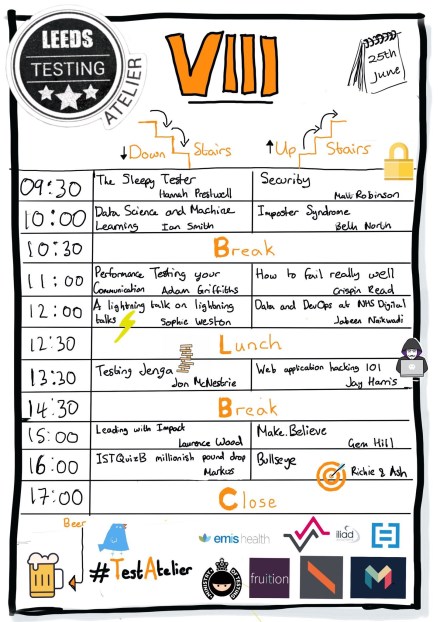 LEEDS
TESTING
ATELIER
VIII
25th
June
↓Down Stairs
↑Up Stairs
09:30
The Sleepy Tester
Hannah Prestwell
Security
Matt Robinson
10:00
Data Science and Machine
Learning Ian Smith
Imposter Syndrome
Beth North
10:30
Break
11:00
Performance Testing your
Communication Adam Griffiths
How to fail really well
Crispin Read
12:00
A lightning talk on lightning
talks Sophie Weston
Data and DevOps at NHS Digital
Jabeen Naikwadi
12:30
Lunch
13:30
Testing Jenga
Jon McNestrie
Web application hacking 101
Jay Harris
14:30
Break
15:00
Leading with Impact
Laurence Wood
Make.Believe
Gem Hill
16:00
ISTQuizB millionish pound drop
Markus
Bullseye
Richie & Ash
17:00
Close
Beer
#TestAtelier
emis health
iliad
MINISTRY OF TESTING
fruition